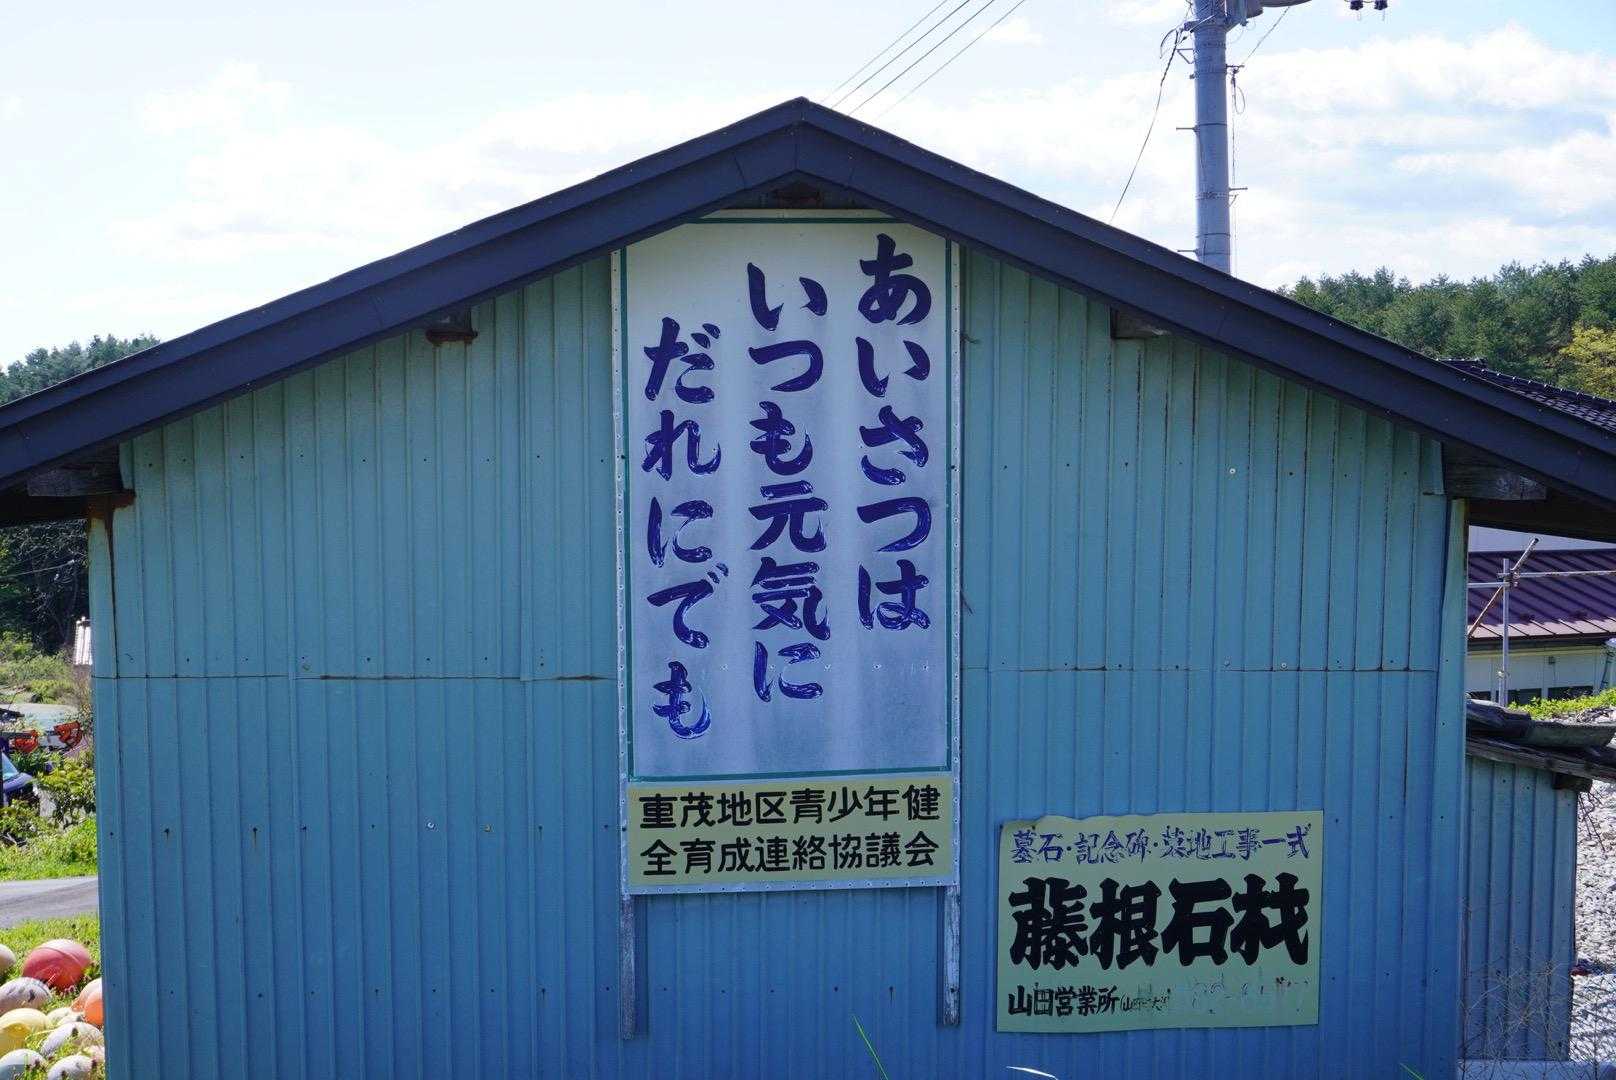 あいさつは
いつも元気に
だれにでも
重茂地区青少年健
全育成連絡協議会
墓石・記念碑・墓地工事一式
藤根石材
山田営業所